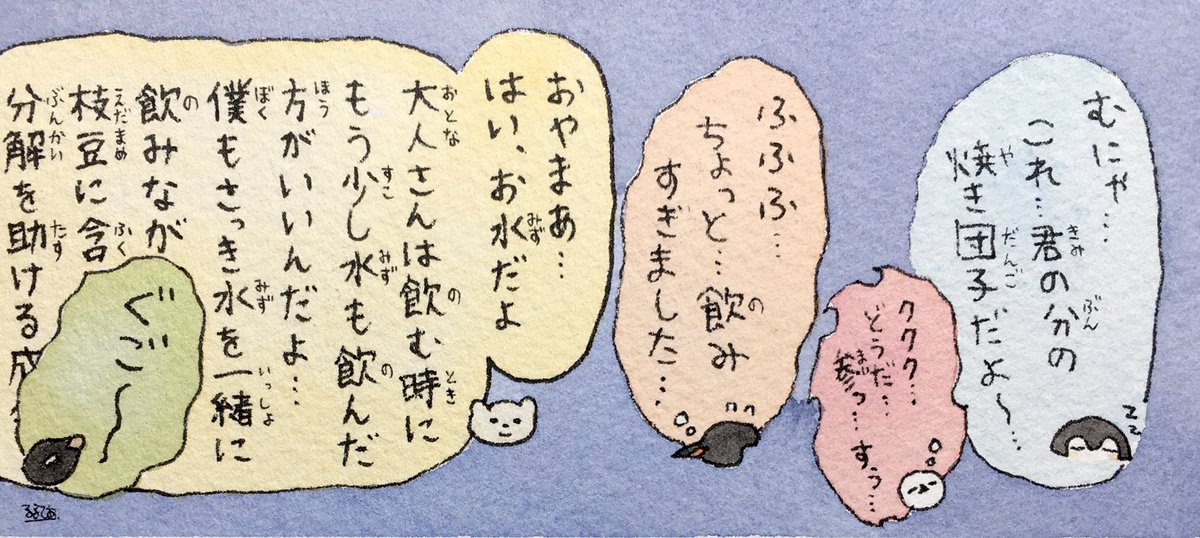 むにゃ…
これ…君の分の
焼き団子だよ～…
ククク…
どうだ…
参っ…すぅ…
ふふふ…
ちょっと…飲み
すぎました…
おやまあ…
はい、お水だよ
大人さんは飲む時に
もう少し水も飲んだ
方がいいんだよ…
僕もさっき水を一緒に
飲みなが
枝豆に含
分解を助ける成
ぐご〜
るるてあ